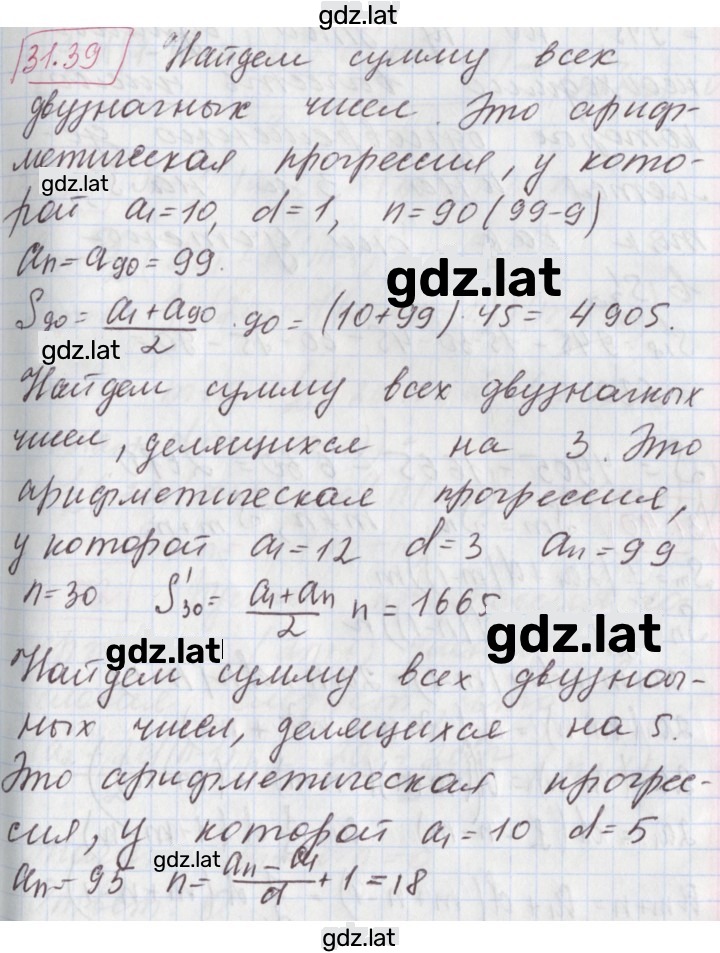 gdz.lat
31.39 Найдем сумму всех
двузначных чисел. Это ариф-
метическая прогрессия, у кото-
gdz.lat
рой a₁=10, d=1, n=90(99-9)
aₙ=a₉₀=99.
gdz.lat
S₉₀= (a₁+a₉₀)/2 · 90 = (10+99)·45= 4905.
gdz.lat
Найдем сумму всех двузначных
чисел, делящихся на 3. Это
арифметическая прогрессия,
у которой a₁=12 d=3 aₙ=99
n=30 S'₃₀= (a₁+aₙ)/2 n = 1665
gdz.lat
gdz.lat
Найдем сумму всех двузнач-
ных чисел, делящихся на 5.
Это арифметическая прогрес-
сия, у которой a₁=10 d=5
gdz.lat
aₙ=95 n= (aₙ-a₁)/d +1=18
gdz.lat